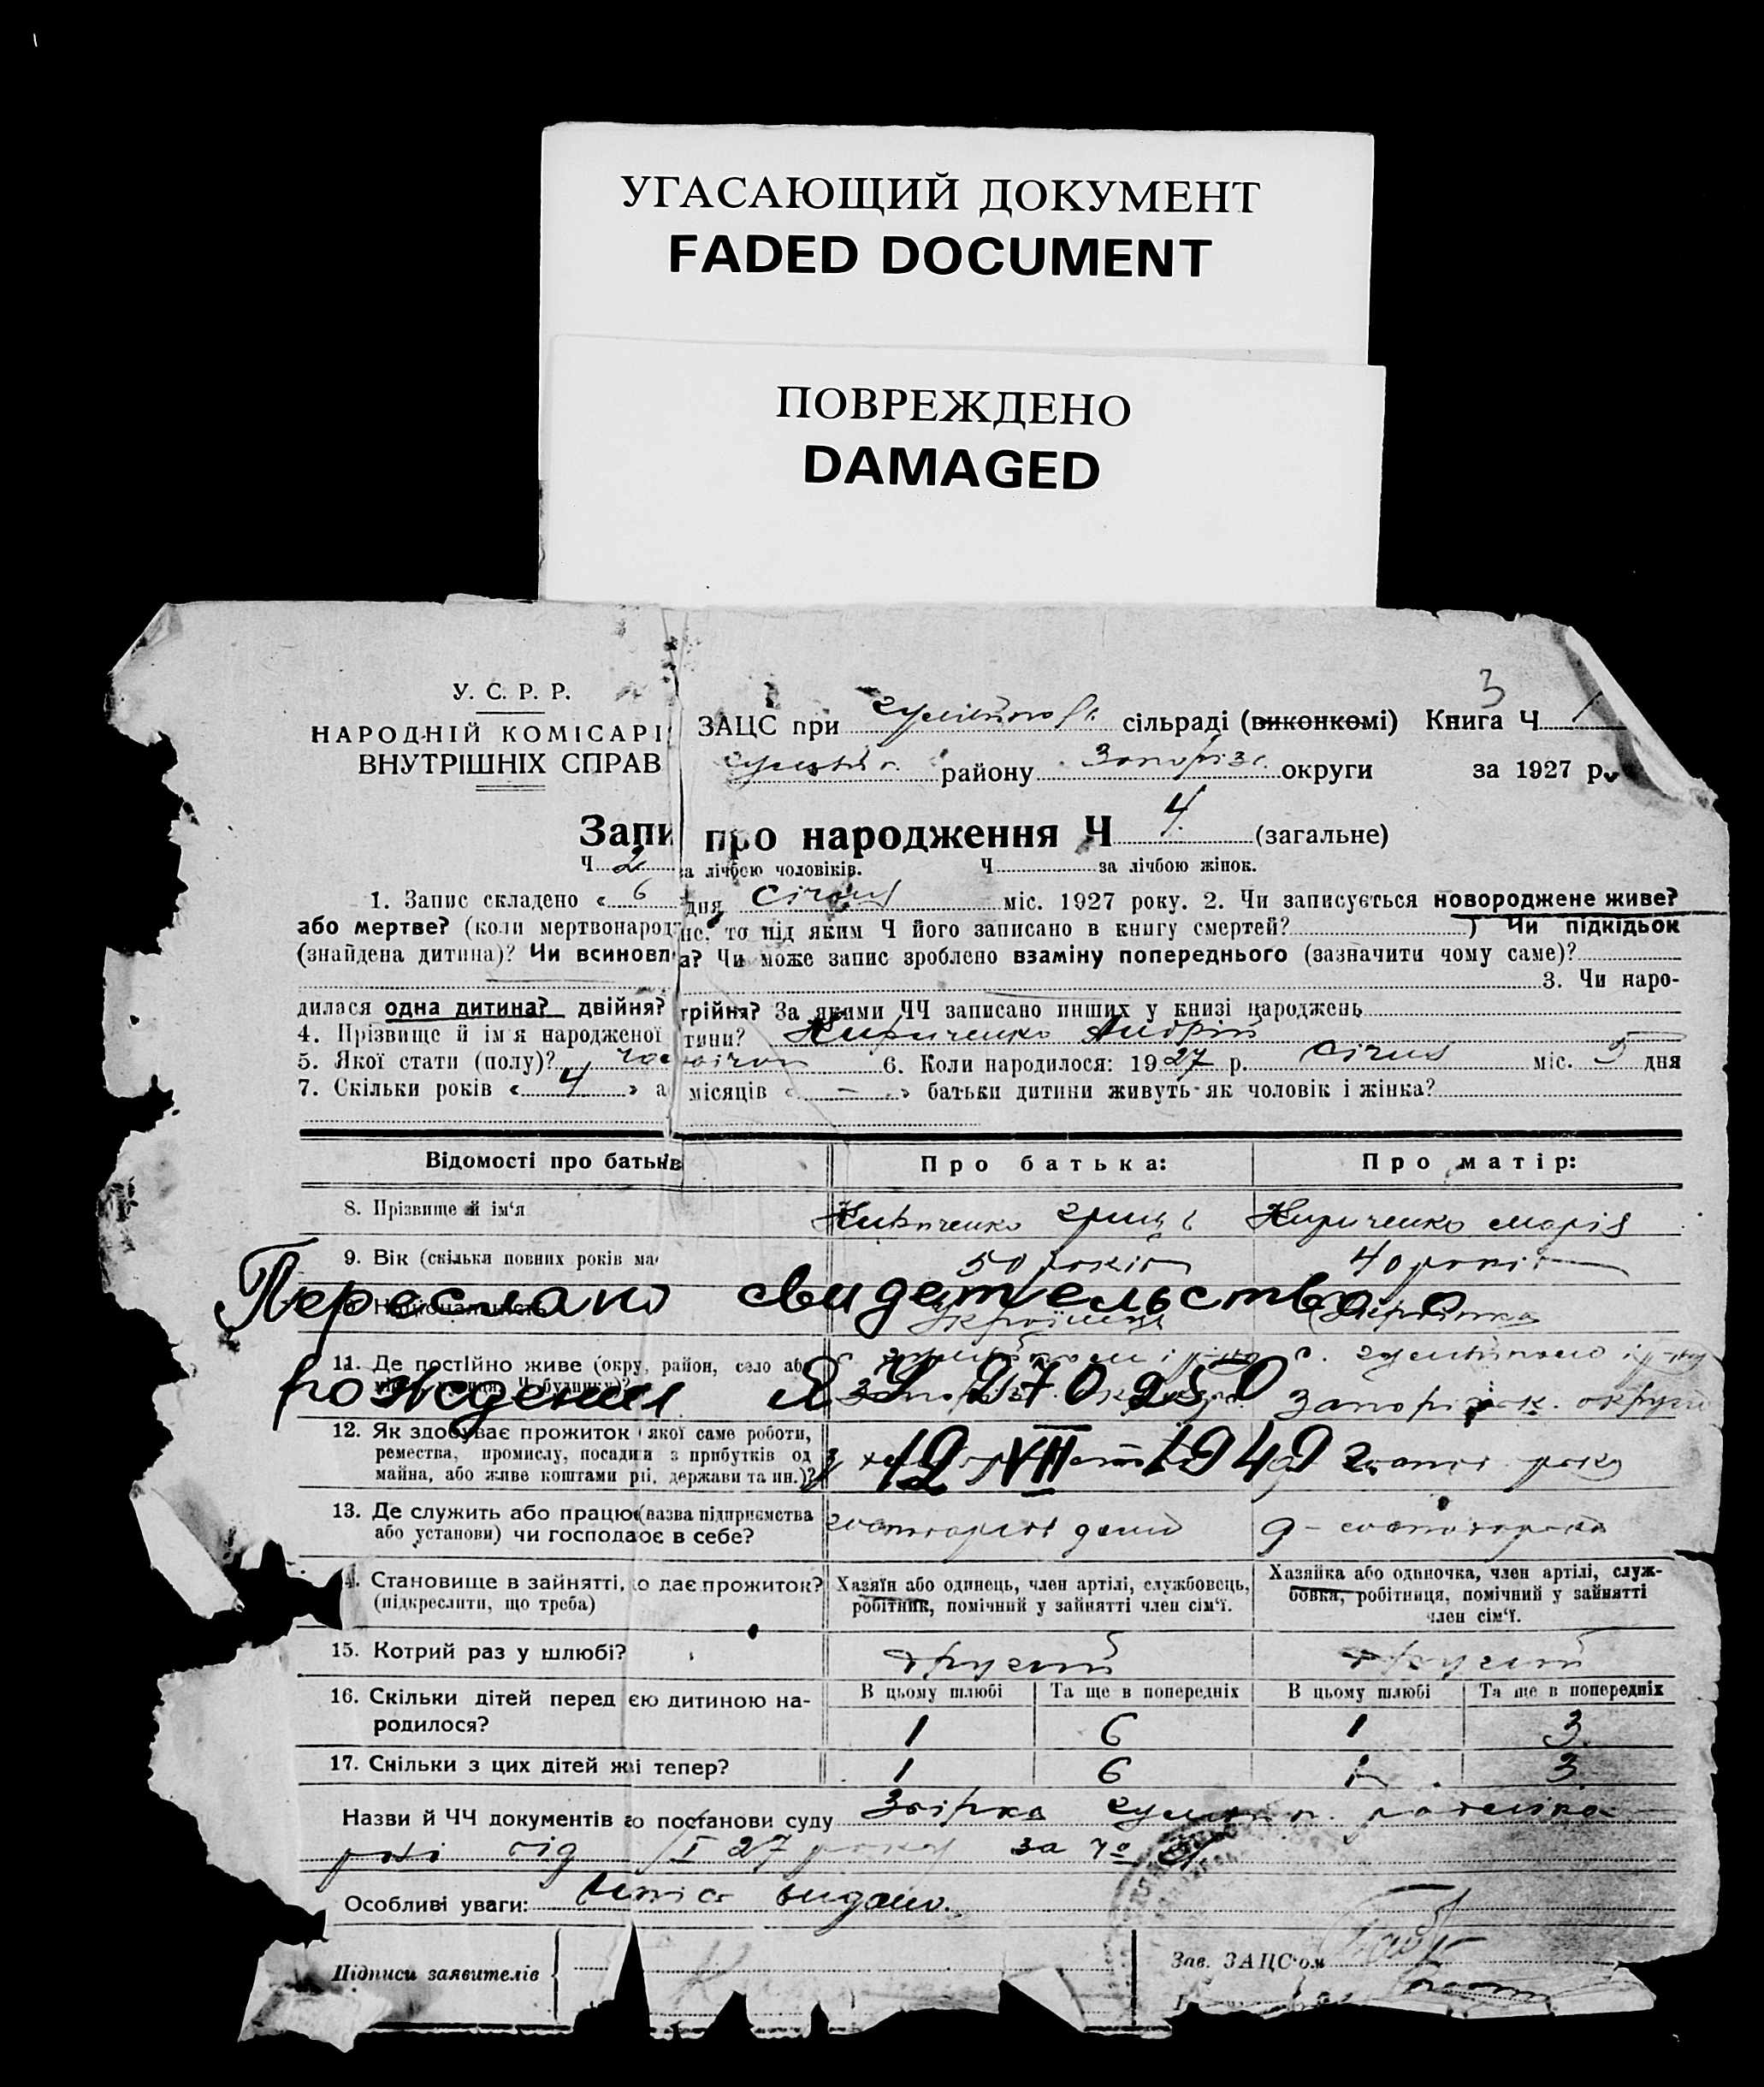 УГАСАЮЩИЙ ДОКУМЕНТ
FADED DOCUMENT
ПОВРЕЖДЕНО
DAMAGED
3
У. С. Р. Р.
НАРОДНІЙ КОМІСАРІ
ВНУТРІШНІХ СПРАВ
ЗАЦС при сільраді (виконкомі) Книга Ч 1
району Запоріз. округи за 1927 р.
Запи про народження Ч 4. (загальне)
Ч 2 за лічбою чоловіків. Ч за лічбою жінок.
1. Запис складено « 6 дня січня міс. 1927 року. 2. Чи записується новороджене живе?
або мертве? (коли мертвонарод не, то під яким Ч його записано в книгу смертей? ) Чи підкідьок
(знайдена дитина)? Чи всиновл а? Чи може запис зроблено взаміну попереднього (зазначити чому саме)?
3. Чи наро-
дилася одна дитина? двійня? трійня? За якими ЧЧ записано инших у книзі народжень
4. Прізвище й ім'я народженої тини? Кириченко Андрій
5. Якої стати (полу)? 6. Коли народилося: 1927 р. січня міс. 5 дня
7. Скільки років « 4 » а місяців « – » батьки дитини живуть як чоловік і жінка?
Відомості про батьків Про батька: Про матір:
8. Прізвище й ім'я Кириченко Гриць Кириченко Марія
9. Вік (скільки повних років ма 50 років 40 років
Переслано свидетельство о
10. Національність Українець Українка
11. Де постійно живе (окру, район, село аб
рождении ЯУ 270250
Запорізьк. округи
12. Як здобуває прожиток якої саме роботи,
ремества, промислу, посади и з прибутків од
майна, або живе коштами рні, держави та ин.)?
12 VII 1949 г.
13. Де служить або працює (назва підприємства
або установи) чи господаоє в себе?
4. Становище в зайнятті, о дає прожиток?
(підкреслити, що треба)
Хазяїн або одинець, член артілі, службовець,
робітник, помічний у зайнятті член сім'ї.
Хазяйка або одиночка, член артілі, служ-
бовка, робітниця, помічний у зайнятті
член сім'ї.
15. Котрий раз у шлюбі? другий другий
16. Скільки дітей перед єю дитиною на-
родилося?
В цьому шлюбі Та ще в попередніх В цьому шлюбі Та ще в попередніх
1 6 1 3
17. Скільки з цих дітей жи і тепер? 1 6 1 3
Назви й ЧЧ документів о постанови суду
від I 27 року за №
Особливі уваги: видано.
Підписи заявителів
Зав. ЗАЦС'ом